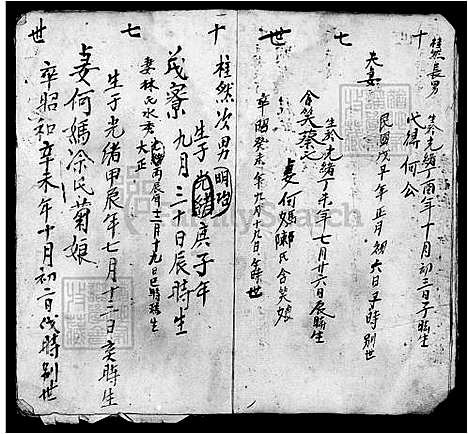 十七世
桂然長男
代得何公
生於光緒丁酉年十月初三日子時生
民國戊午年正月初六日丑時別世
夫妻
含笑蔡氏
生於光緒丁未年七月廿六日辰時生
妻何媽鄭氏含笑娘
卒昭癸未年九月十九日午時世
十七世
桂然次男明
生于光緒庚子年
茂寮九月三十日辰時生
妻林氏水秀
大正
丙辰年十二月十九日巳時瑞生
生于光緒甲辰年七月十二日亥時生
妻何媽涂氏菊娘
卒昭和辛未年十月初二日戌時別世
FamilySearch